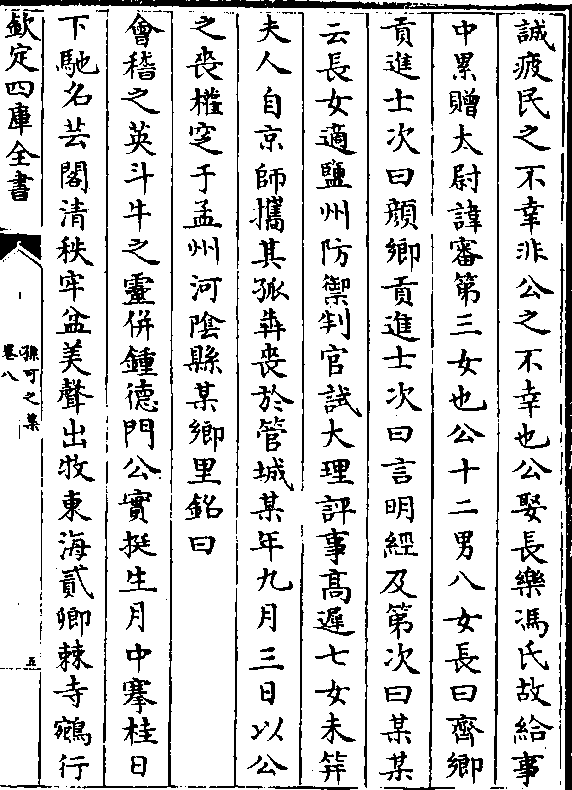 誠疲民之不幸非公之不幸也公娶長樂馮氏故給事
中累贈太尉諱審第三女也公十二男八女長曰齊卿
貢進士次曰顔卿貢進士次曰言明經及第次曰某某
云長女適鹽州防禦判官試大理評事髙遲七女未笄
夫人自京師攜其孤犇喪於管城某年九月三日以公
之喪權窆于孟州河陰縣某鄉里銘曰
會稽之英斗牛之靈併鍾德門公實挺生月中搴桂日
下馳名芸閣清秩牢盆美聲出牧東海貳卿棘寺鵷行
欽定四庫全書
孫可之集
卷八
五